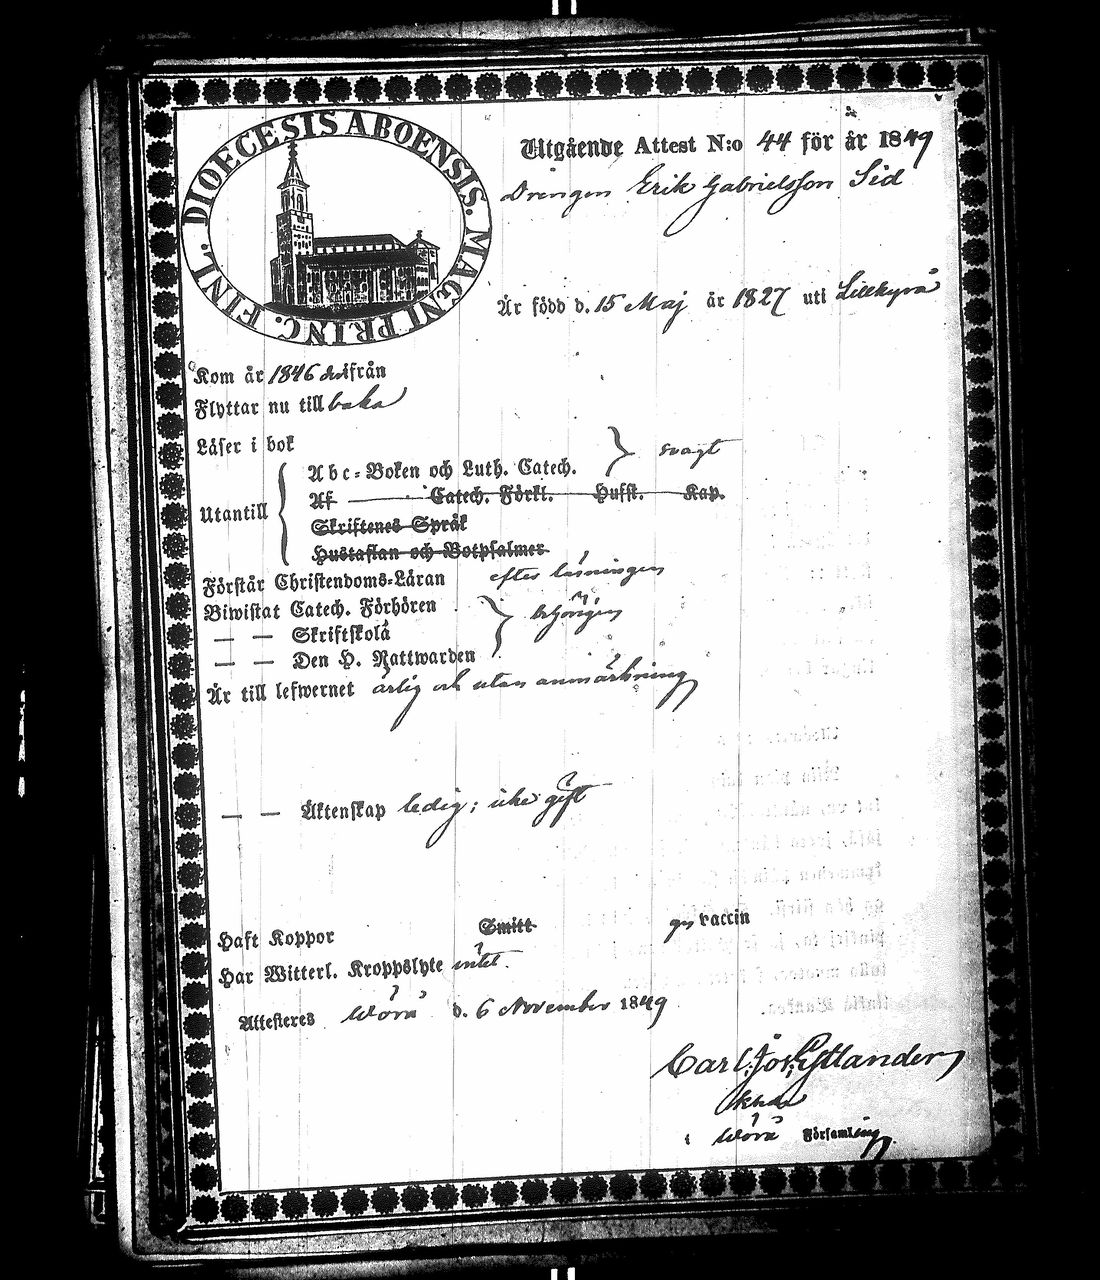 DIOECESIS ABOENSIS. MAGNI PRINC. FINL.
Utgående Attest N:o 44 för år 1849
Drengen Erik Gabrielsson Sid
Är född d. 15 Maj år 1827 uti Lillkyrå
Kom år 1846 derifrån
Flyttar nu till baka
Läser i bok
Utantill
Abc-Boken och Luth. Catech. svagt
Af Catech. Förkl. Hufst. Kap.
Skriftenes Språk
Hustaflan och Botpsalmer
Förstår Christendoms-Läran efter läsningen
Biwistat Catech. Förhören
— — Skriftskola behörigen
— — Den H. Nattwarden
Är till lefwernet ärlig och utan anmärkning
— — Äktenskap ledig; icke gift
Haft Koppor Smitt gm vaccin
Har Witterl. Kroppslyte intet.
Attesteres Wörå d. 6 November 1849
Carl Joh.
i Wörå Församling.